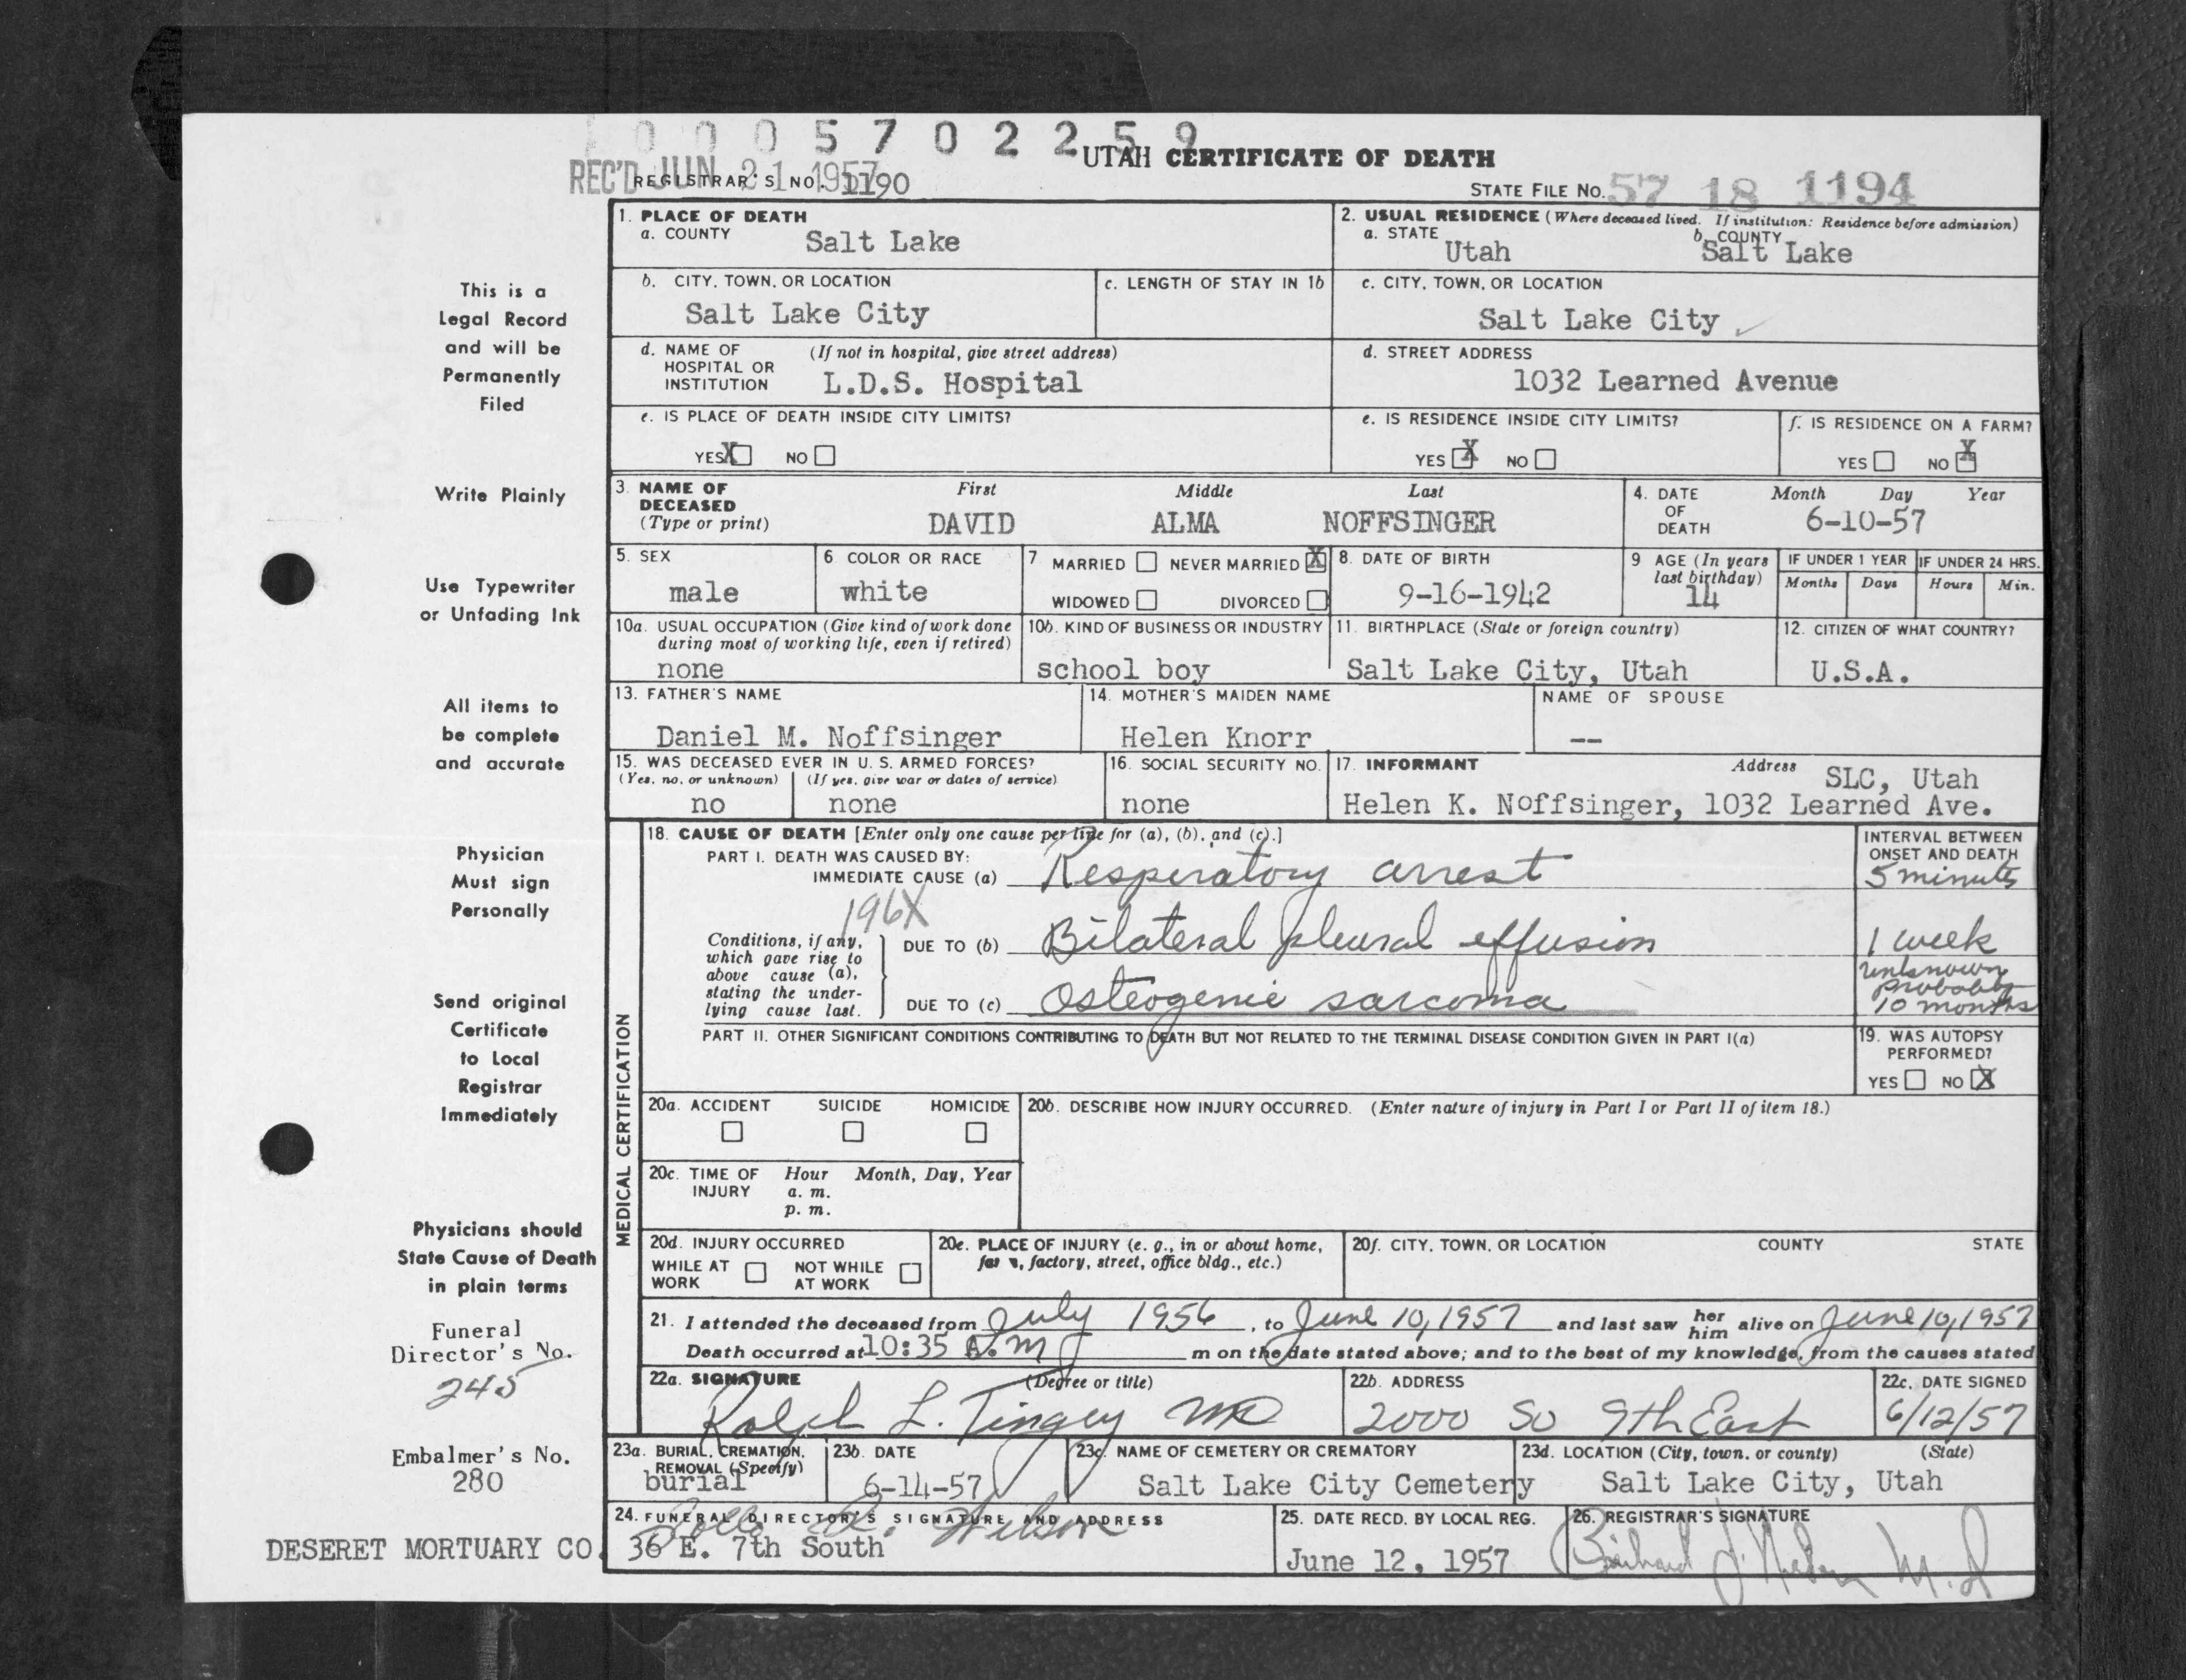 0 0 0 5 7 0 2 2 5 9
UTAH CERTIFICATE OF DEATH
REC'D JUN 21 1957
REGISTRAR'S NO. 1190
STATE FILE NO. 57 18 1194
This is a
Legal Record
and will be
Permanently
Filed
Write Plainly
Use Typewriter
or Unfading Ink
All items to
be complete
and accurate
Physician
Must sign
Personally
Send original
Certificate
to Local
Registrar
Immediately
Physicians should
State Cause of Death
in plain terms
Funeral
Director's No.
245
Embalmer's No.
280
DESERET MORTUARY CO.
1. PLACE OF DEATH
a. COUNTY Salt Lake
2. USUAL RESIDENCE (Where deceased lived. If institution: Residence before admission)
a. STATE Utah b. COUNTY Salt Lake
b. CITY, TOWN, OR LOCATION
Salt Lake City
c. LENGTH OF STAY IN 1b
c. CITY, TOWN, OR LOCATION
Salt Lake City
d. NAME OF HOSPITAL OR INSTITUTION (If not in hospital, give street address)
L.D.S. Hospital
d. STREET ADDRESS
1032 Learned Avenue
e. IS PLACE OF DEATH INSIDE CITY LIMITS?
YES X NO
e. IS RESIDENCE INSIDE CITY LIMITS?
YES X NO
f. IS RESIDENCE ON A FARM?
YES NO X
3. NAME OF DECEASED (Type or print)
First Middle Last
DAVID ALMA NOFFSINGER
4. DATE OF DEATH Month Day Year
6-10-57
5. SEX
male
6 COLOR OR RACE
white
7 MARRIED NEVER MARRIED X
WIDOWED DIVORCED
8. DATE OF BIRTH
9-16-1942
9 AGE (In years last birthday)
14
IF UNDER 1 YEAR IF UNDER 24 HRS.
Months Days Hours Min.
10a. USUAL OCCUPATION (Give kind of work done during most of working life, even if retired)
none
10b. KIND OF BUSINESS OR INDUSTRY
school boy
11. BIRTHPLACE (State or foreign country)
Salt Lake City, Utah
12. CITIZEN OF WHAT COUNTRY?
U.S.A.
13. FATHER'S NAME
Daniel M. Noffsinger
14. MOTHER'S MAIDEN NAME
Helen Knorr
NAME OF SPOUSE
--
15. WAS DECEASED EVER IN U. S. ARMED FORCES?
(Yes, no, or unknown) (If yes, give war or dates of service)
no none
16. SOCIAL SECURITY NO.
none
17. INFORMANT Address
SLC, Utah
Helen K. Noffsinger, 1032 Learned Ave.
MEDICAL CERTIFICATION
18. CAUSE OF DEATH [Enter only one cause per line for (a), (b), and (c).]
PART I. DEATH WAS CAUSED BY:
IMMEDIATE CAUSE (a) Respiratory arrest
INTERVAL BETWEEN ONSET AND DEATH
5 minutes
196X
Conditions, if any, which gave rise to above cause (a), stating the underlying cause last.
DUE TO (b) Bilateral pleural effusion
1 week
DUE TO (c) Osteogenic sarcoma
unknown
probably
10 months
PART II. OTHER SIGNIFICANT CONDITIONS CONTRIBUTING TO DEATH BUT NOT RELATED TO THE TERMINAL DISEASE CONDITION GIVEN IN PART I(a)
19. WAS AUTOPSY PERFORMED?
YES NO X
20a. ACCIDENT SUICIDE HOMICIDE
20b. DESCRIBE HOW INJURY OCCURRED. (Enter nature of injury in Part I or Part II of item 18.)
20c. TIME OF INJURY Hour Month, Day, Year
a. m.
p. m.
20d. INJURY OCCURRED
WHILE AT WORK NOT WHILE AT WORK
20e. PLACE OF INJURY (e. g., in or about home, farm, factory, street, office bldg., etc.)
20f. CITY, TOWN, OR LOCATION COUNTY STATE
21. I attended the deceased from July 1956, to June 10, 1957 and last saw her him alive on June 10, 1957
Death occurred at 10:35 A.m m on the date stated above; and to the best of my knowledge, from the causes stated
22a. SIGNATURE (Degree or title)
Ralph L. Tingey MD
22b. ADDRESS
2000 So 9th East
22c. DATE SIGNED
6/12/57
23a. BURIAL, CREMATION, REMOVAL (Specify)
burial
23b. DATE
6-14-57
23c. NAME OF CEMETERY OR CREMATORY
Salt Lake City Cemetery
23d. LOCATION (City, town, or county) (State)
Salt Lake City, Utah
24. FUNERAL DIRECTOR'S SIGNATURE AND ADDRESS
36 E. 7th South
25. DATE RECD. BY LOCAL REG.
June 12, 1957
26. REGISTRAR'S SIGNATURE
M.D